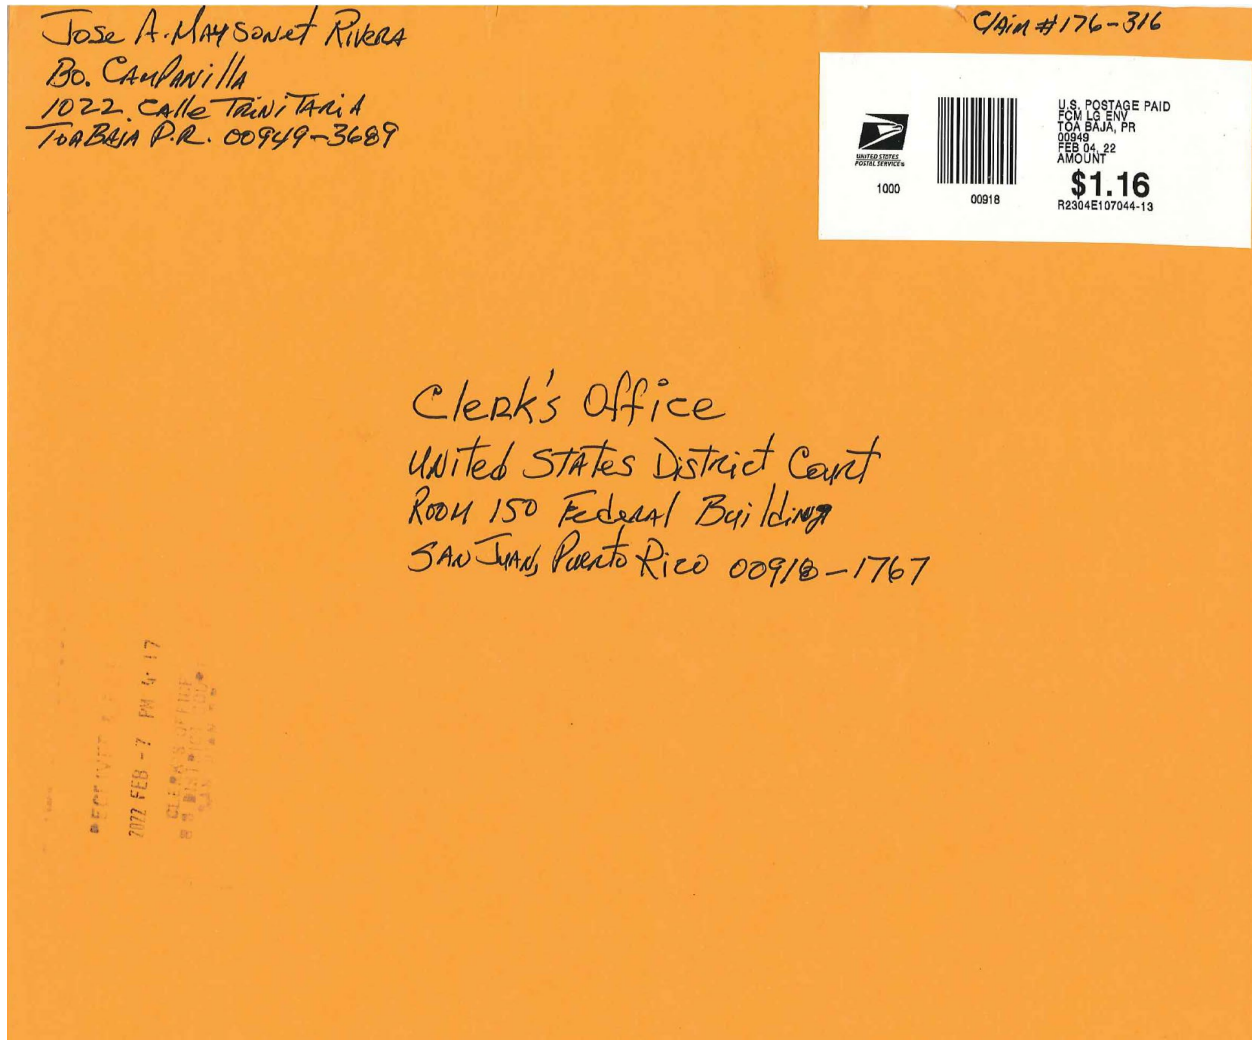 Jose A. Maysonet Rivera
Bo. Campanilla
1022 Calle Trinitaria
Toa Baja P.R. 00949-3689
Claim #176-316
UNITED STATES
POSTAL SERVICE®
1000
00918
U.S. POSTAGE PAID
FCM LG ENV
TOA BAJA, PR
00949
FEB 04, 22
AMOUNT
$1.16
R2304E107044-13
Clerk's Office
United States District Court
Room 150 Federal Building
San Juan, Puerto Rico 00918-1767
RECEIVED
2022 FEB -7 PM 4:17
CLERK'S OFFICE